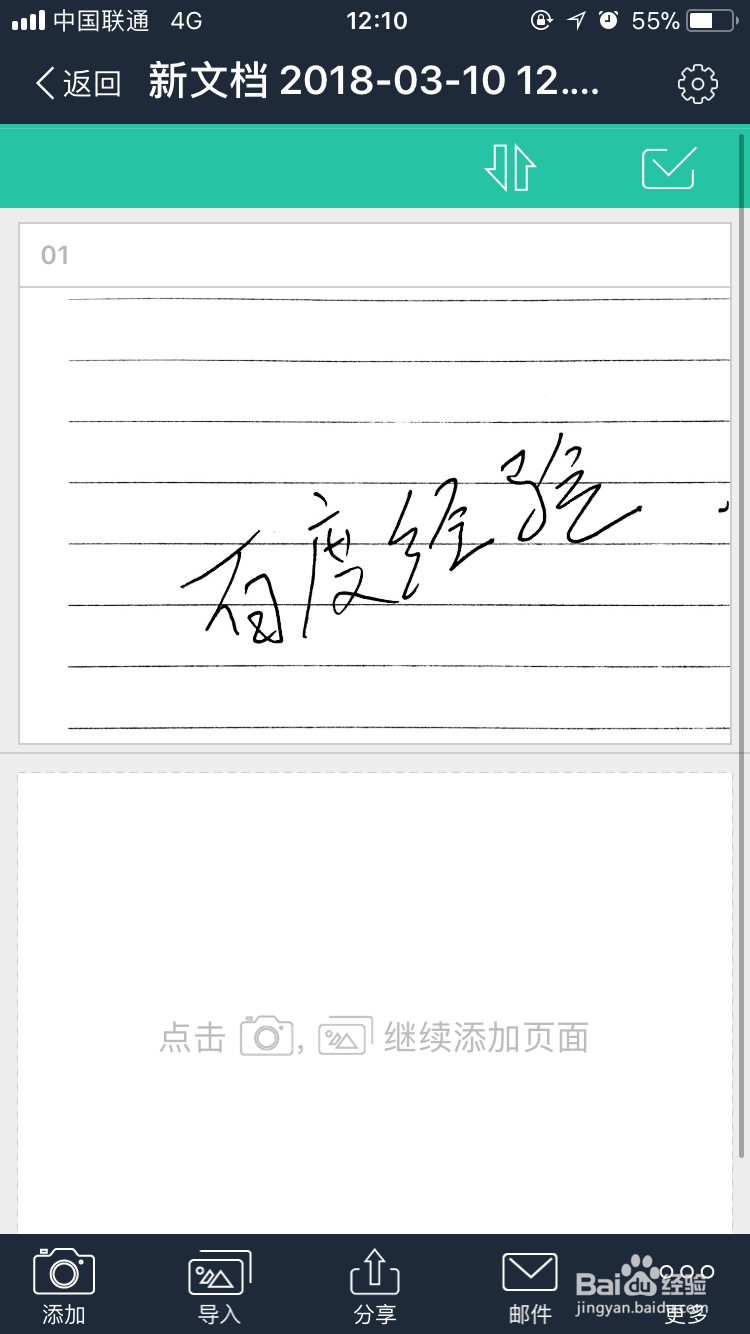 中国联通 4G 12:10 55%
返回 新文档 2018-03-10 12....
01
百度经验
点击 , 继续添加页面
添加 导入 分享 邮件 更多
Baidu 经验
jingyan.baidu.com